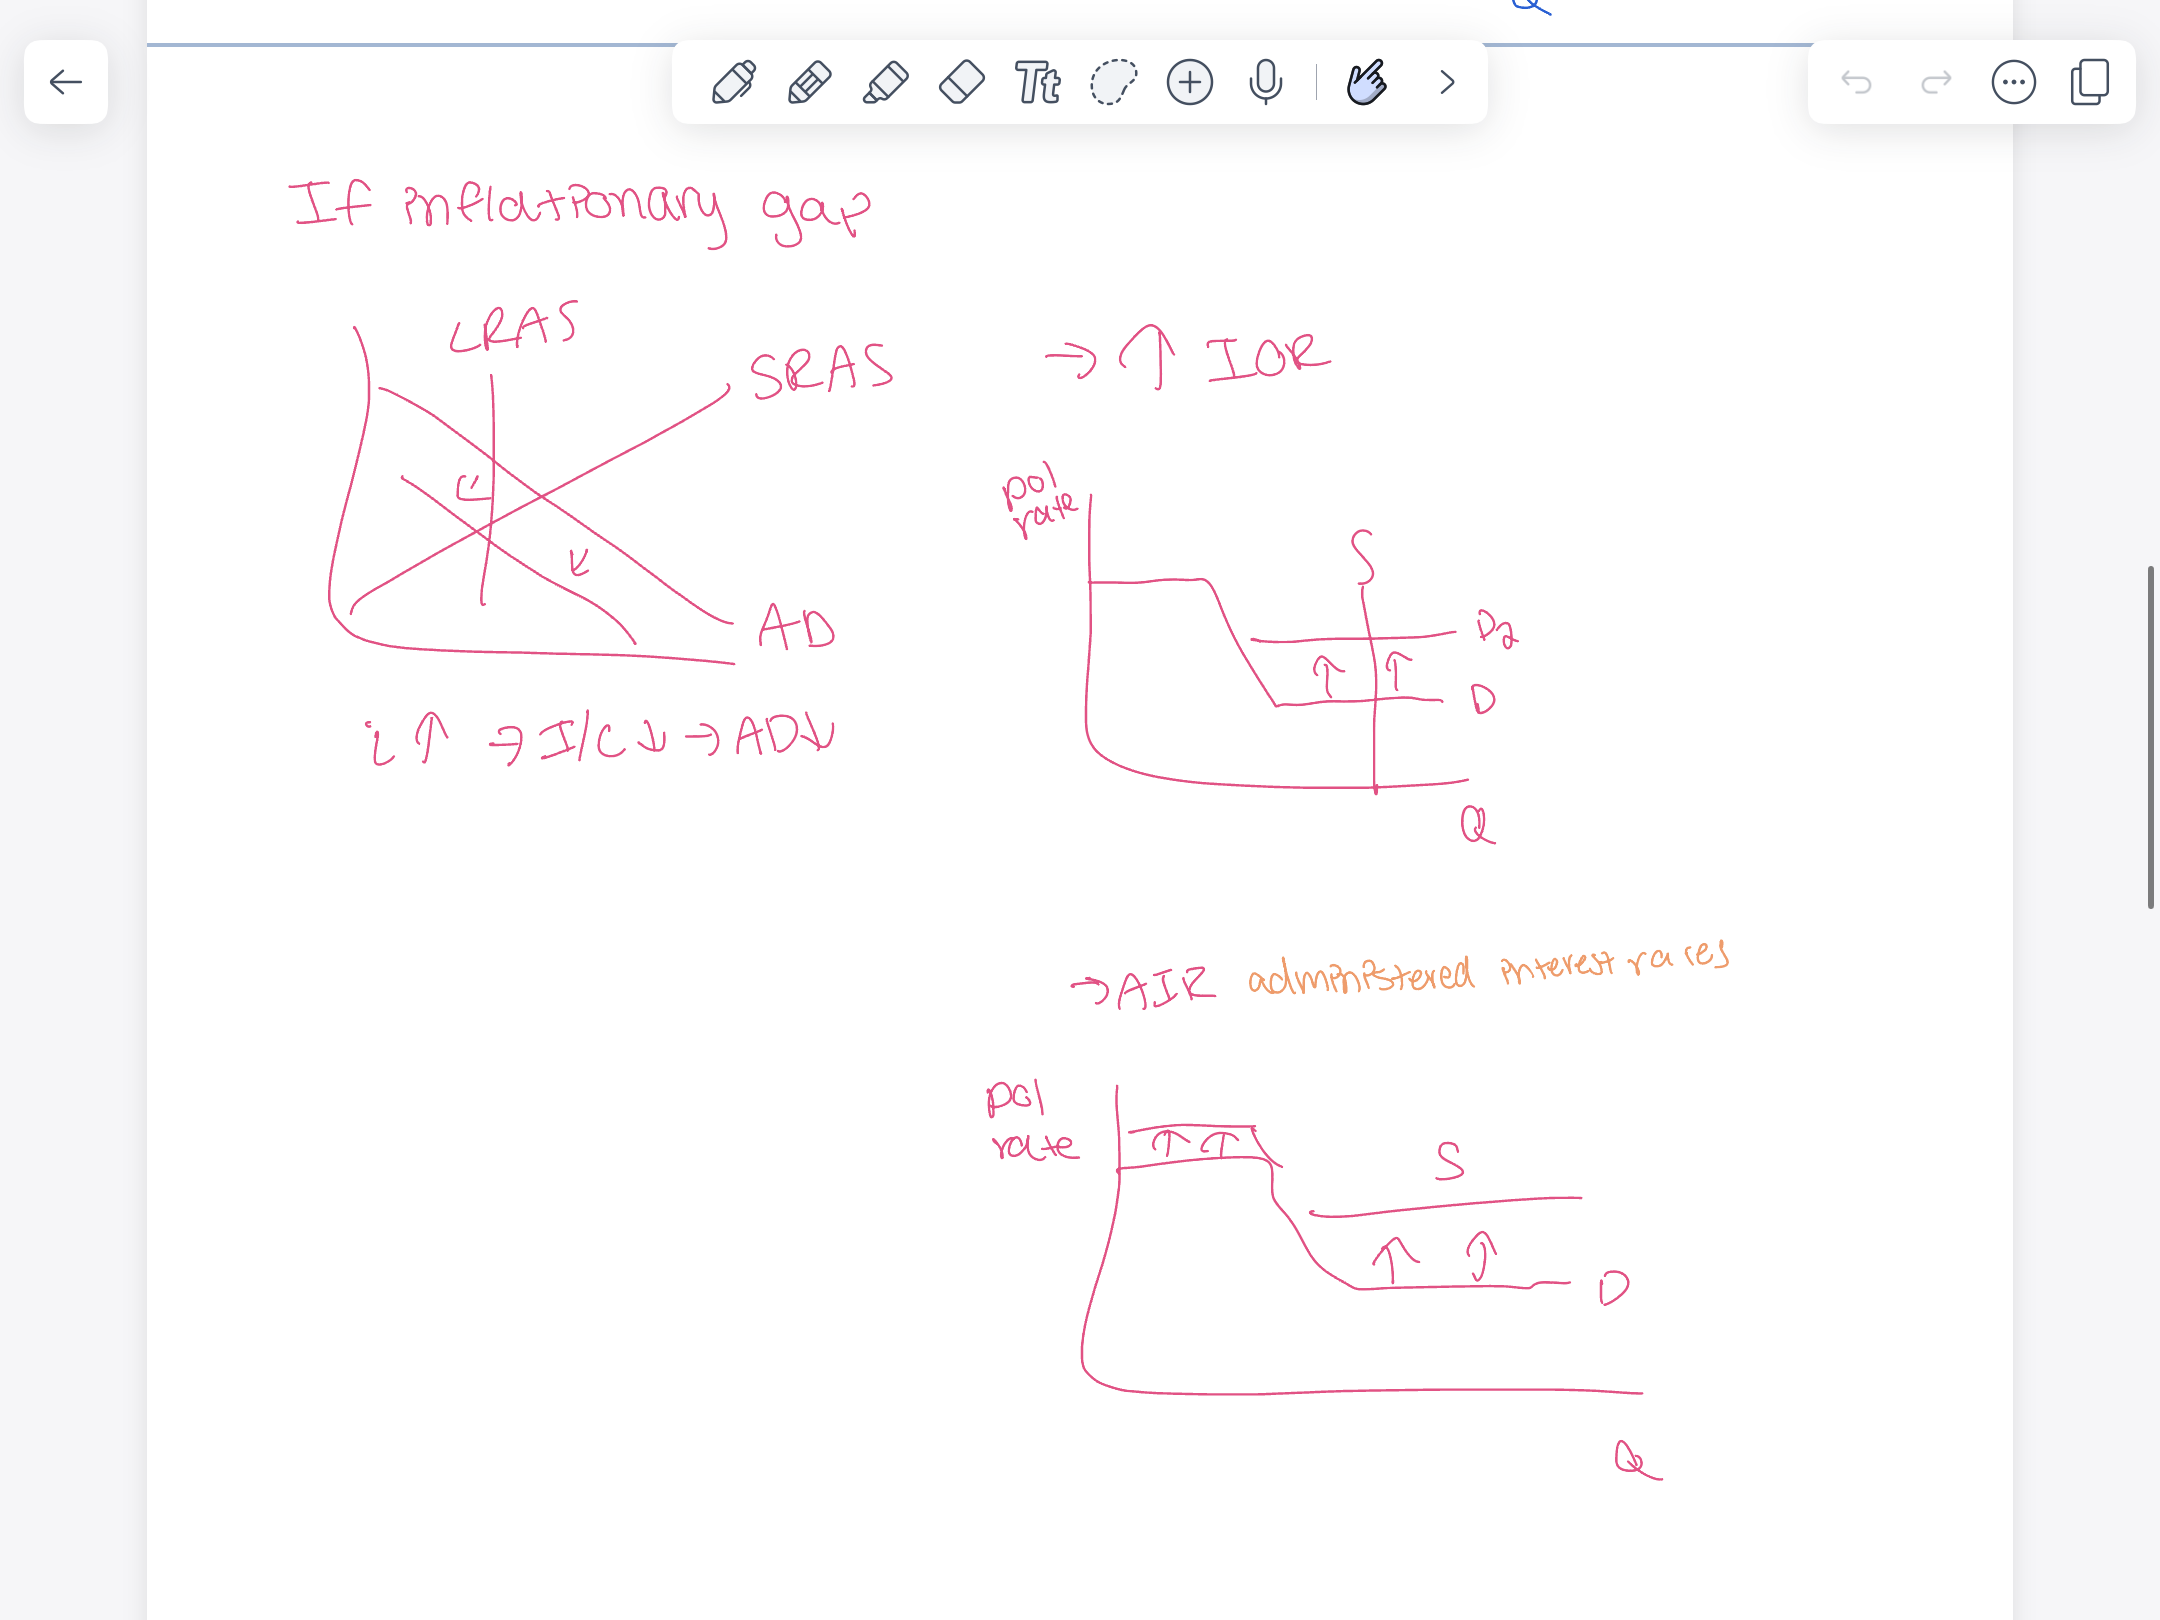 Q
Tt
If inflationary gap
LRAS
SRAS
→ ↑ IOR
AD
i ↑ → I/C ↓ → AD↓
pol
rate
S
D2
D
Q
→ AIR administered interest rates
pol
rate
S
D
Q